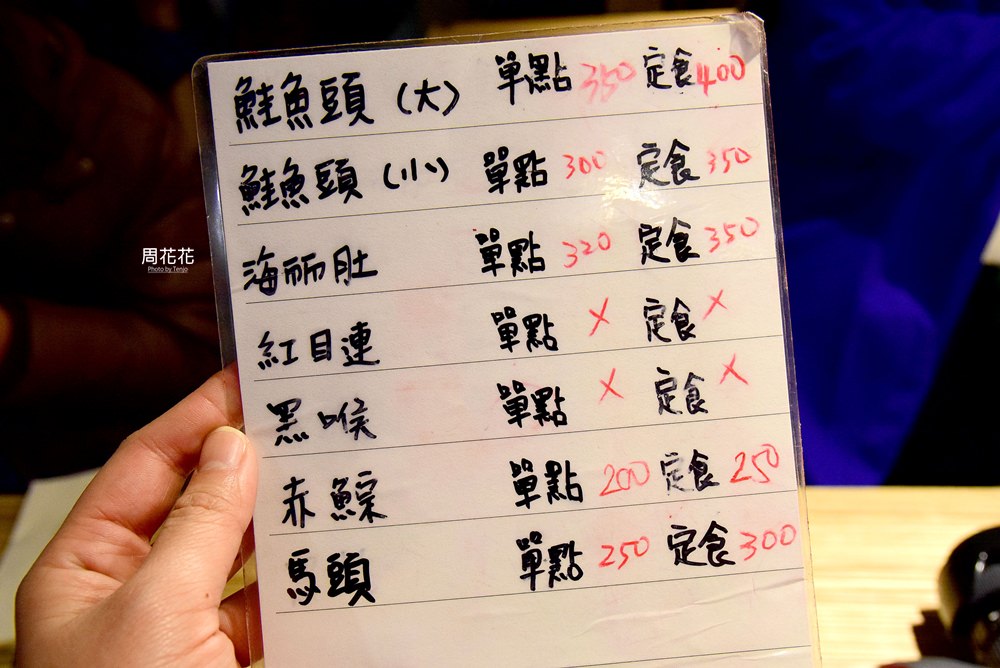 鮭魚頭（大） 單點 350 定食 400
鮭魚頭（小） 單點 300 定食 350
海雨肚 單點 320 定食 350
紅目連 單點 X 定食 X
黑喉 單點 X 定食 X
赤鯮 單點 200 定食 250
馬頭 單點 250 定食 300
周花花
Photo by Tenjo